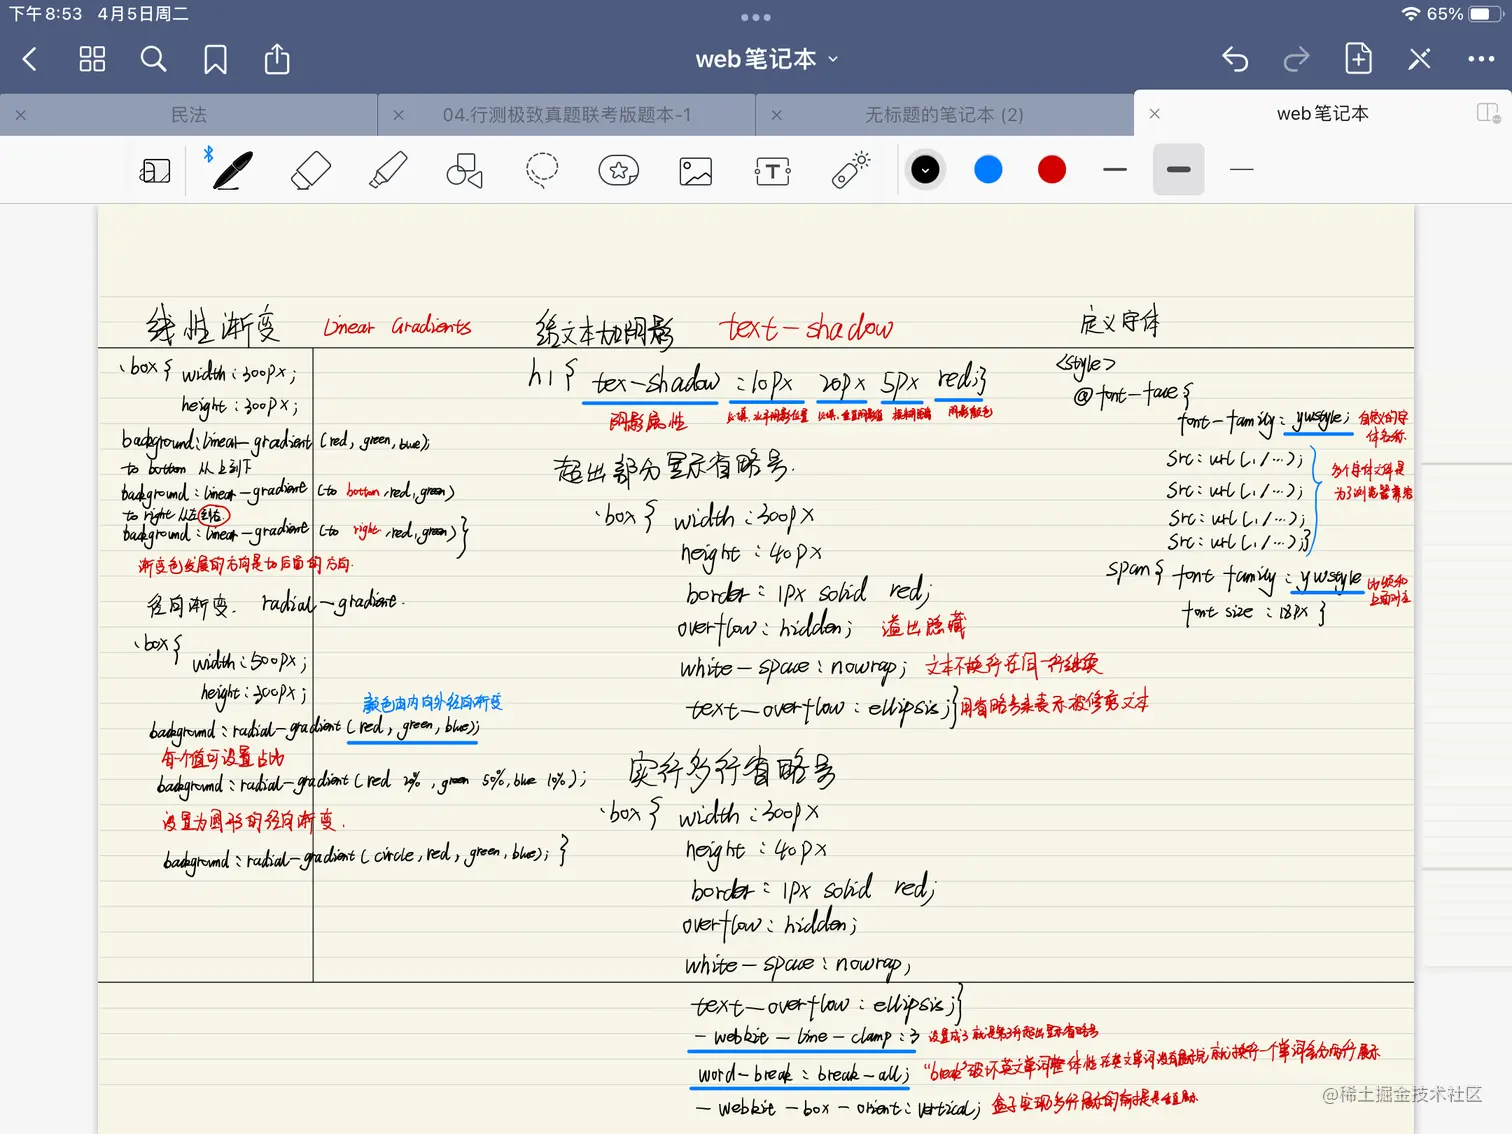 下午8:53 4月5日周二
65%
web笔记本
民法
04.行测极致真题联考版题本-1
无标题的笔记本 (2)
web笔记本
线性渐变 Linear Gradients
.box{ width:300px;
height:300px;
background:linear-gradient(red,green,blue);
to bottom 从上到下
background:linear-gradient(to bottom,red,green)
to right 从左到右
background:linear-gradient(to right,red,green)}
渐变色发展的方向是to后面的方向.
径向渐变. radial-gradient.
.box{
width:500px;
height:300px;
颜色由内向外径向渐变
background:radial-gradient(red,green,blue);
每个值可设置占比
background:radial-gradient(red 20%,green 50%,blue 10%);
设置为圆形的径向渐变.
background:radial-gradient(circle,red,green,blue);}
给文本加阴影 text-shadow
h1{ tex-shadow:10px 20px 5px red;}
阴影属性
阴影颜色
超出部分显示省略号.
.box{ width:300px
height:40px
border:1px solid red;
overflow:hidden; 溢出隐藏
white-space:nowrap; 文本不换行在同一行继续
text-overflow:ellipsis;} 用省略号来表示被修剪文本
实行多行省略号
.box{ width:300px
height:40px
border:1px solid red;
overflow:hidden;
white-space:nowrap;
text-overflow:ellipsis;}
-webkit-line-clamp:3
word-break:break-all;
-webkit-box-orient:vertical;
定义字体
<style>
@font-face{
font-family:ywstyle; 自定义的字
体名称
src:url(./…);
src:url(./…);
src:url(./…);
src:url(./…);}
多个字体文件是
为了浏览器兼容
span{ font family:ywstyle
font size:18px }
@稀土掘金技术社区